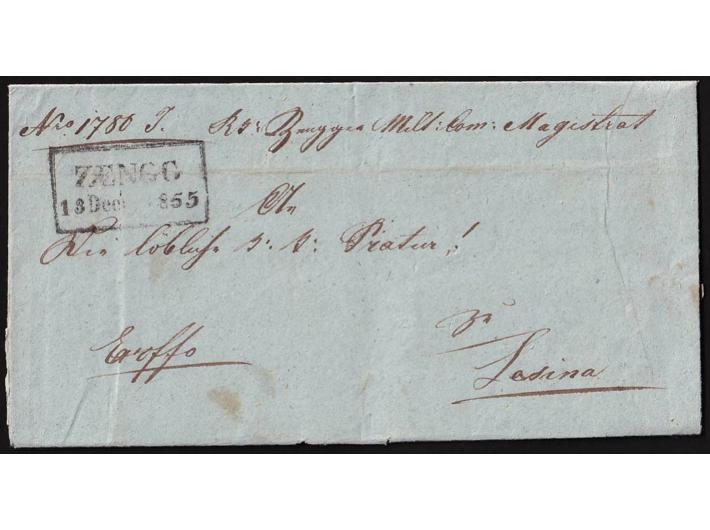 Nro 1780 J. K: k: Zengger Milt: Com: Magistrat
ZÆNGG
13 Dec 855
An
Die löbliche k: k: Prætur!
Exoffo
zu
Lesina